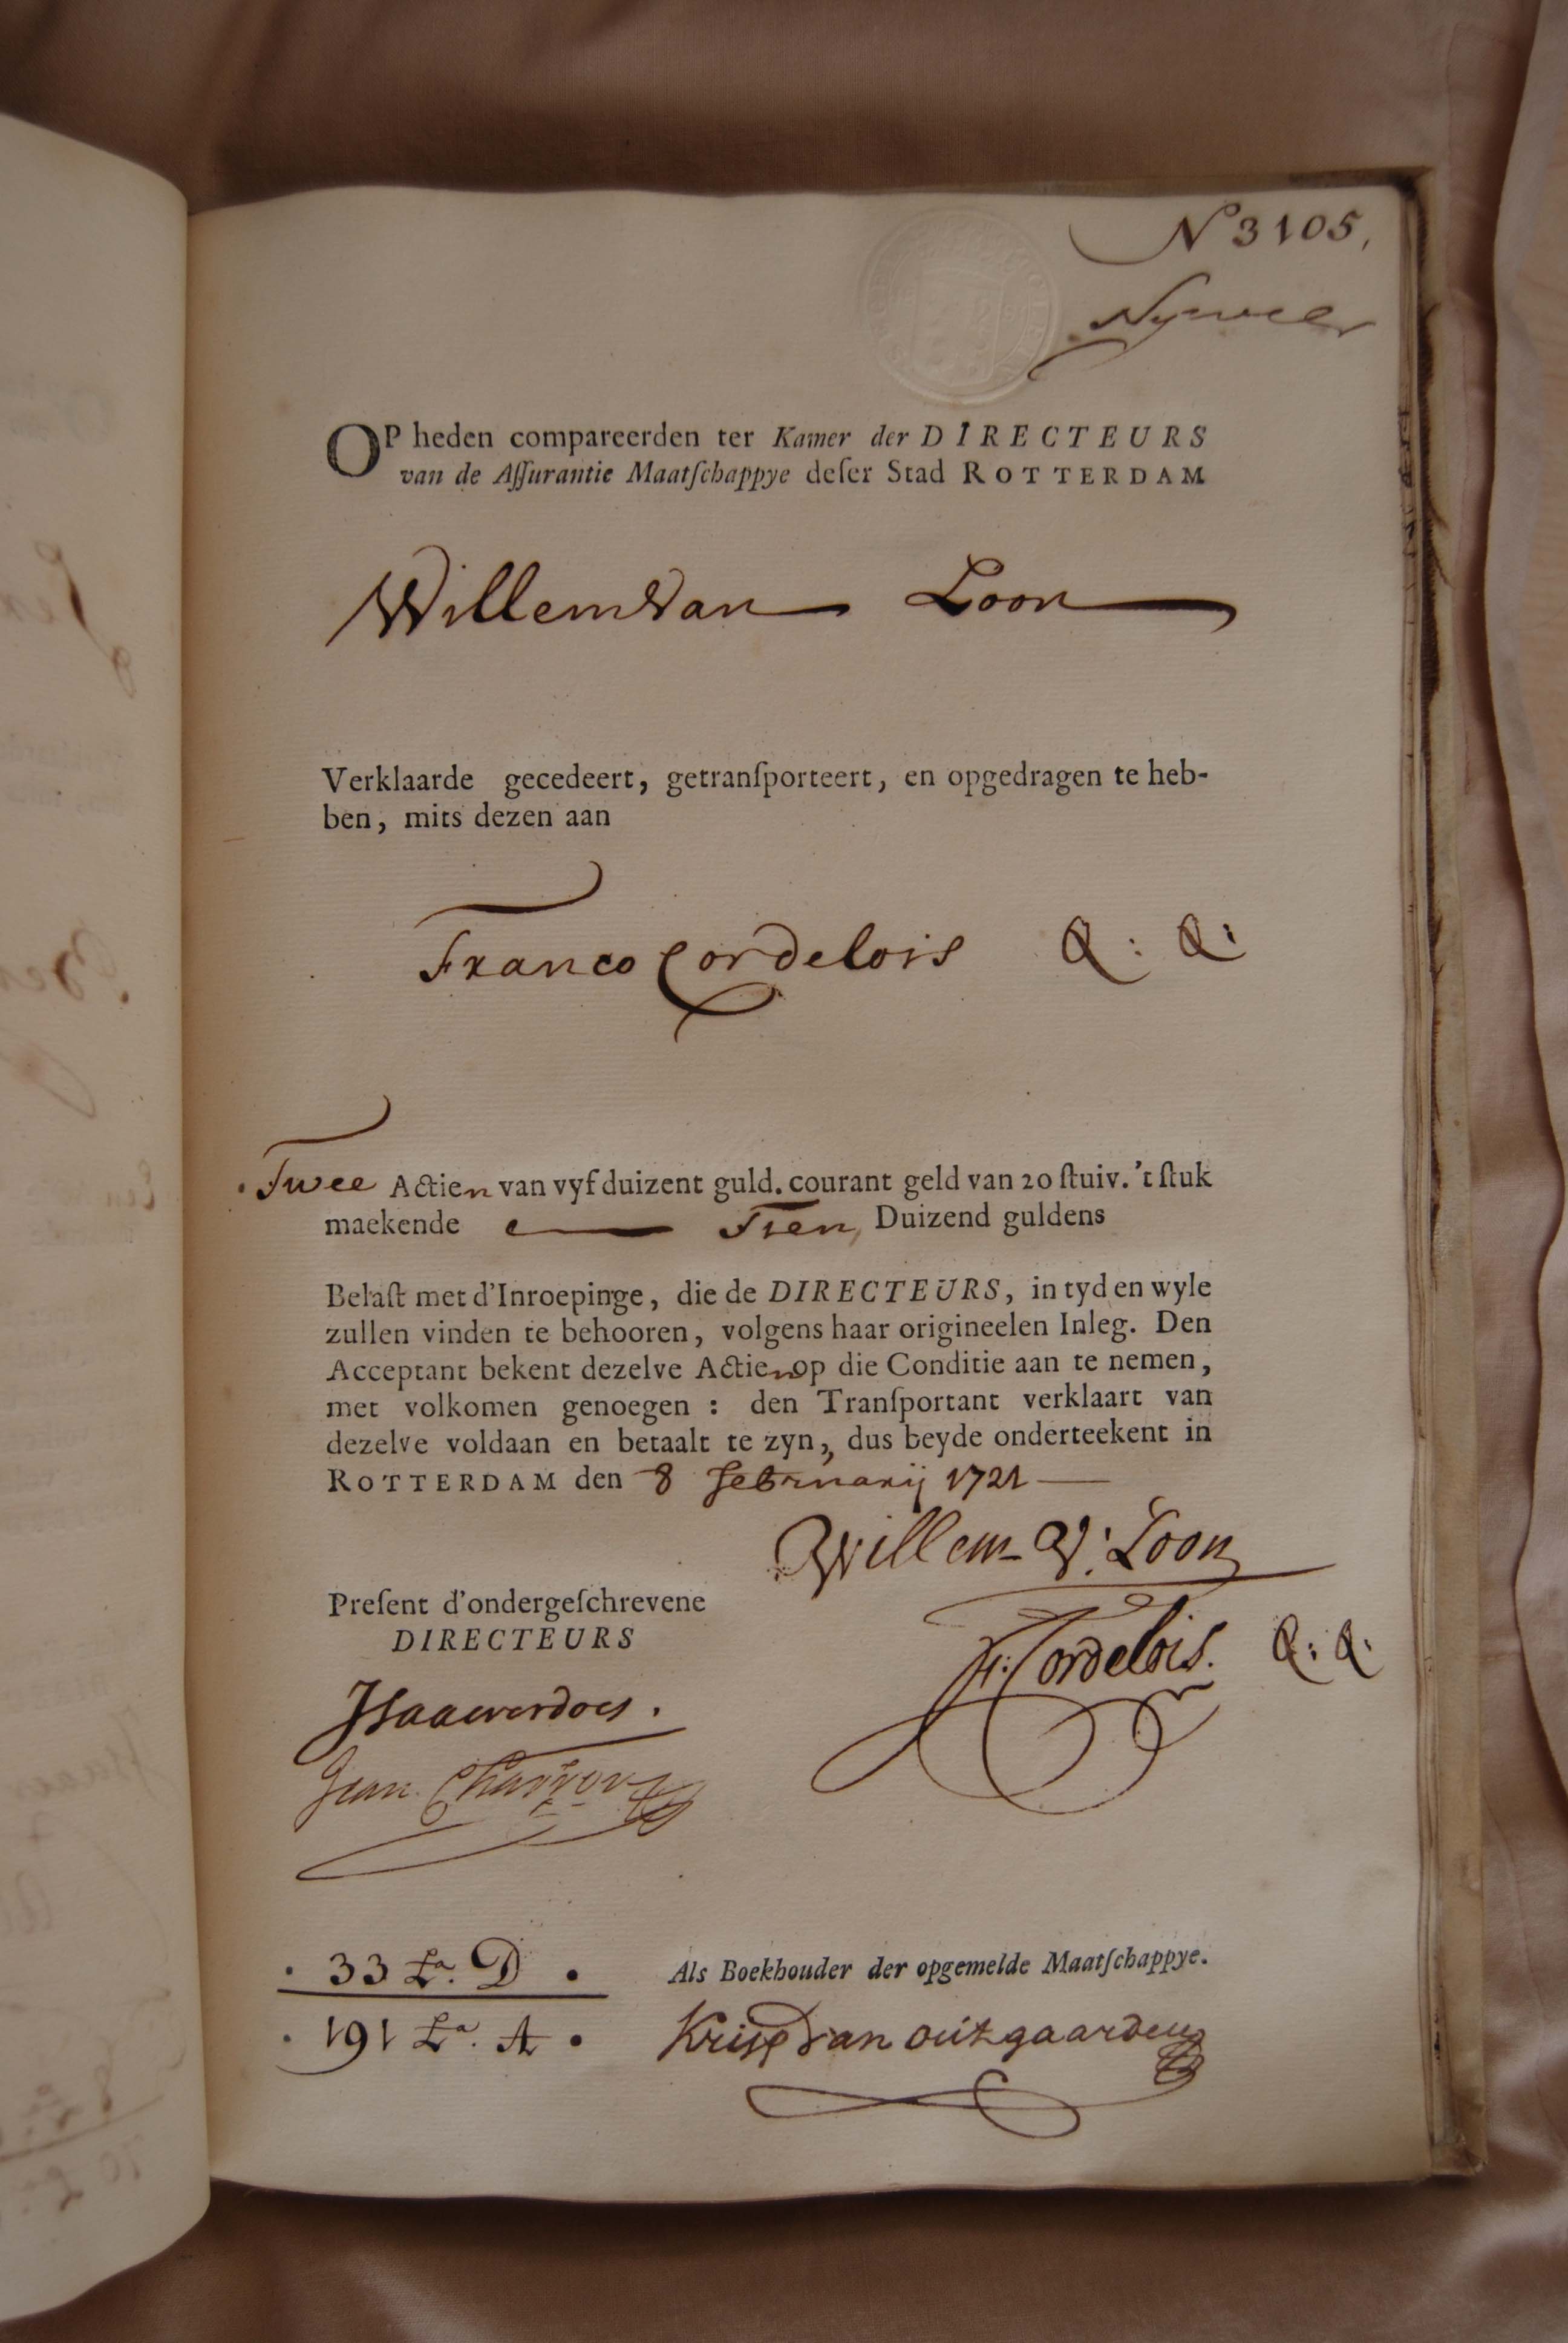 N 3105,
OP heden compareerden ter Kamer der DIRECTEURS
van de Aſſurantie Maatſchappye deſer Stad ROTTERDAM
Willem Van Loon
Verklaarde gecedeert, getranſporteert, en opgedragen te heb-
ben, mits dezen aan
Franco Cordelois Q: Q:
Twee Actien van vyf duizent guld. courant geld van 20 ſtuiv. 't ſtuk
maekende Tien Duizend guldens
Belaſt met d'Inroepinge, die de DIRECTEURS, in tyd en wyle
zullen vinden te behooren, volgens haar origineelen Inleg. Den
Acceptant bekent dezelve Actien op die Conditie aan te nemen,
met volkomen genoegen : den Tranſportant verklaart van
dezelve voldaan en betaalt te zyn, dus beyde onderteekent in
ROTTERDAM den 8 februarij 1721
Willem V: Loon
Preſent d'ondergeſchrevene
DIRECTEURS
F: Cordelois. Q: Q:
Isaac verdoes.
Jean Charron
33 La. D
191 La. A
Als Boekhouder der opgemelde Maatſchappye.
Krisp van outgaarden